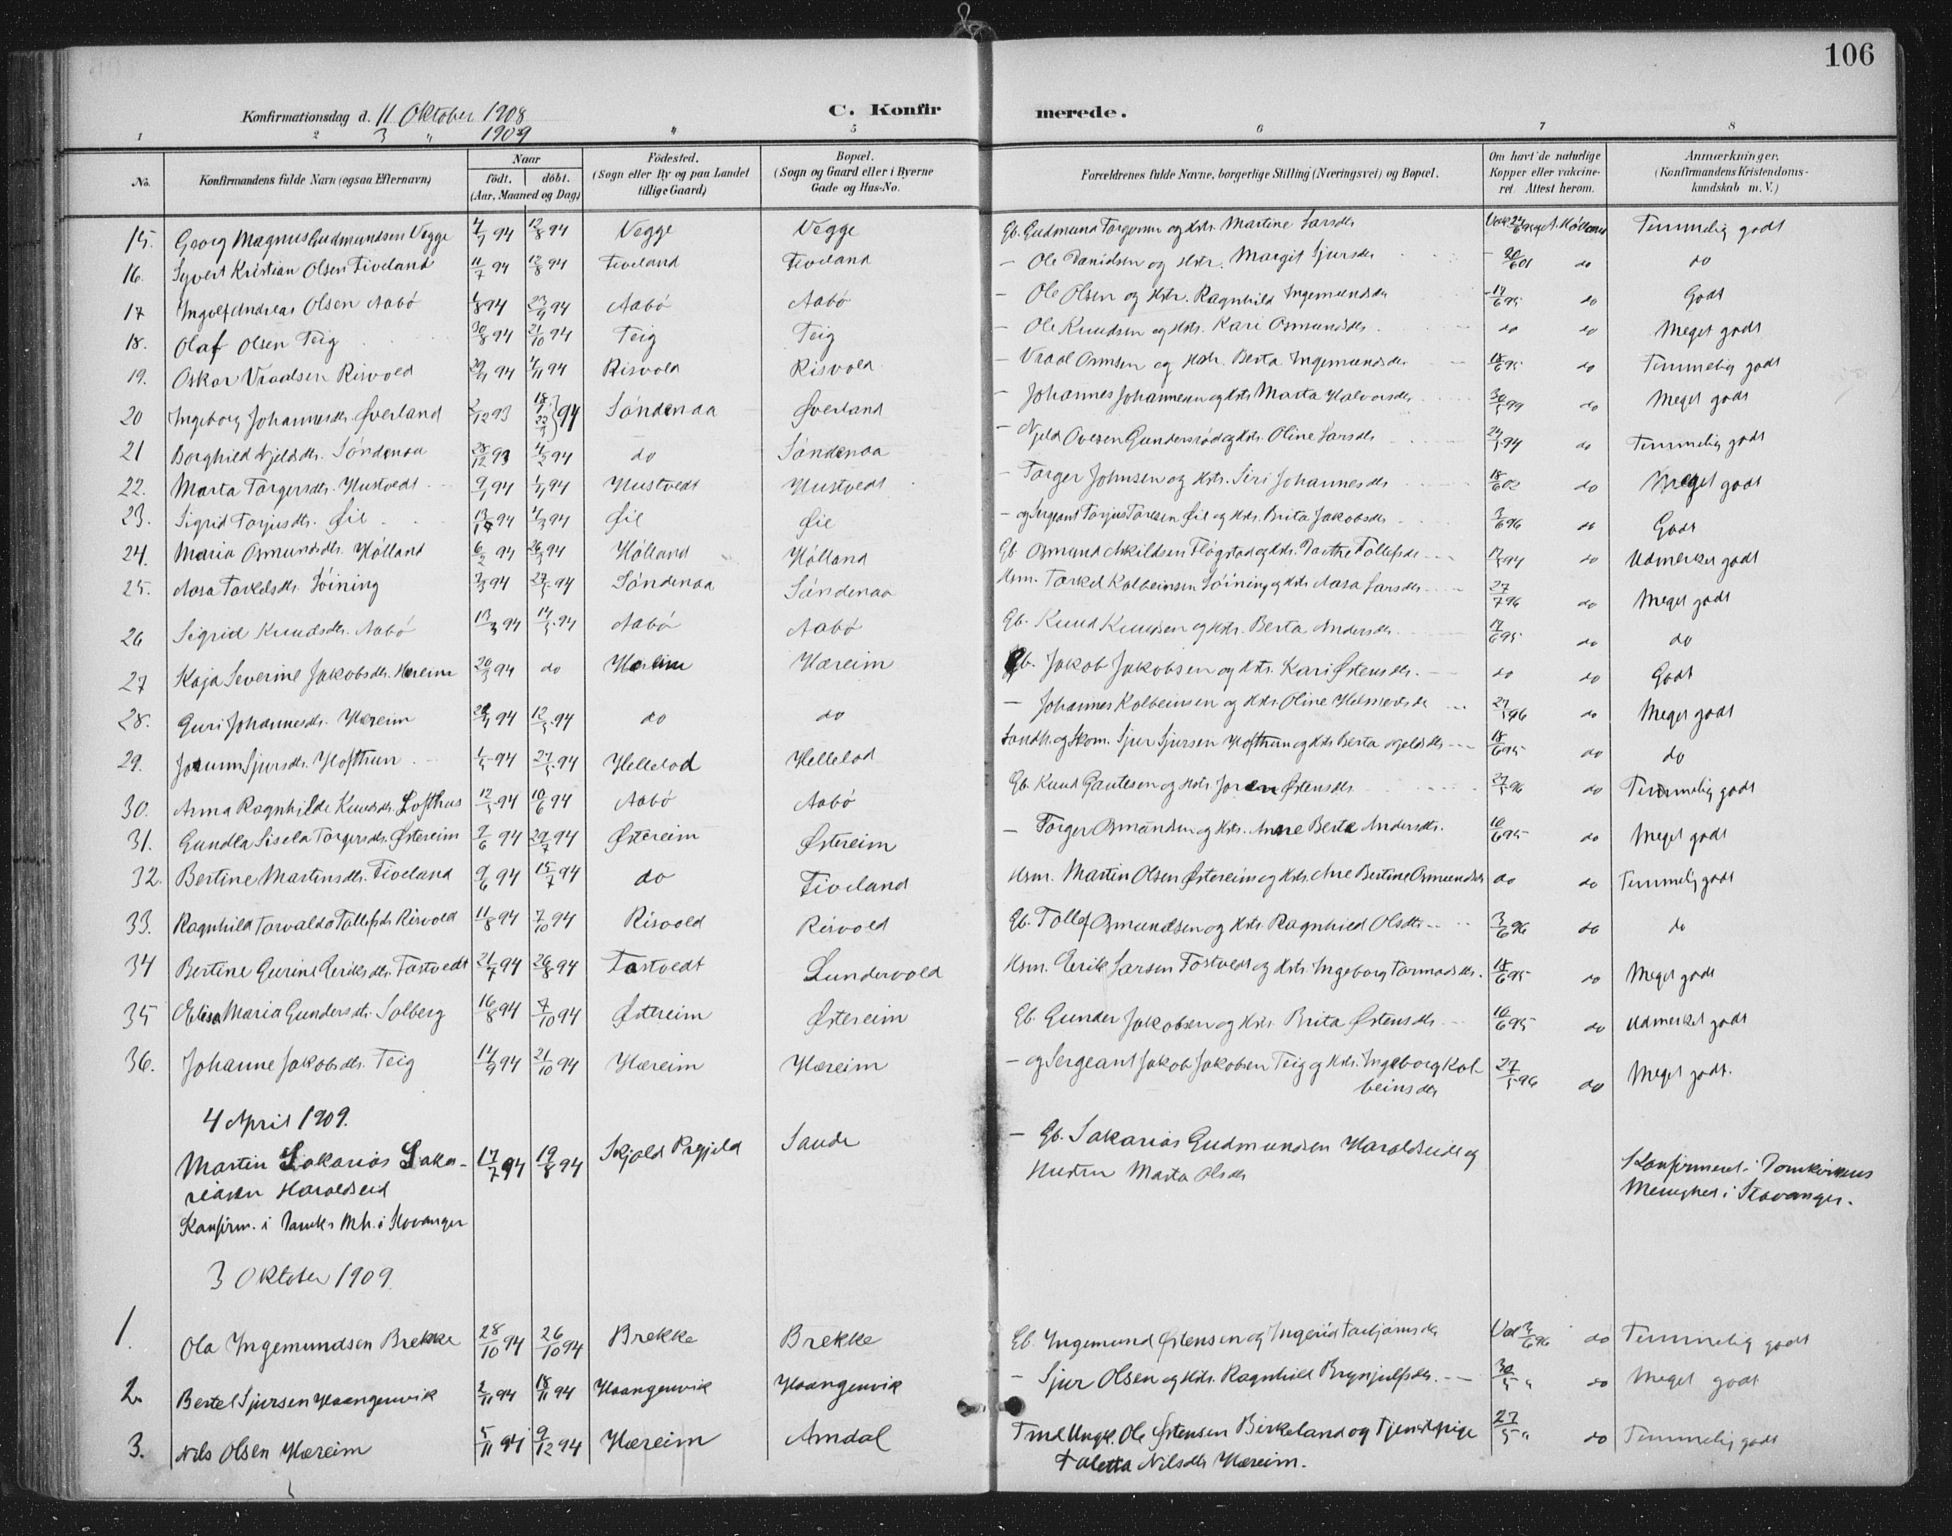 106
Konfirmationsdag d. 11 Oktober 1908 C. Konfirmerede.
3 " 1909 "
1 2 5 6 7 8
No. Konfirmandens fulde Navn (ogsaa Efternavn) Naar født. døbt. (Aar, Maaned og Dag) Fødested. (Sogn eller By og paa Landet tillige Gaard) Bopæl. (Sogn og Gaard eller i Byerne Gade og Hus-No. Forældrenes fulde Navne, borgerlige Stilling (Næringsvei) og Bopæl. Om havt de naturlige Kopper eller vakcineret Attest herom. Anmærkninger. (Konfirmandens Kristendomskundskab m. V.)
15. Georg Magnus Gudmundsen Vegge 4/7 94 12/8 94 Vegge Vegge Gb. Gudmund Torgersen og Hstr. Martine Larsdtr Temmelig godt
16. Syvert Kristian Olsen Tiveland 11/7 94 12/8 94 Tiveland Tiveland – Ole Danielsen og Hstr. Margit Sjursdtr 20/6 01 do do
17 Ingolf Andreas Olsen Aabø 1/8 94 23/9 94 Aabø Aabø – Ole Olsen og Hstr. Ragnhild Ingemundsdtr 17/6 95 do Godt
18. Olaf Olsen Teig 30/8 94 21/10 94 Teig Teig – Ole Knudsen og Hstr. Kari Osmundsdtr. do do Meget godt
19. Oskar Vraalsen Risvold 29/9 94 4/11 94 Risvold Risvold – Vraal Osmsen og Hstr. Berta Ingemundsdtr 18/6 95 do Temmelig godt
20 Ingeborg Johannesdtr. Øverland 2/12 93 94 Søndenaa Øverland – Johannes Johannesen og Hstr. Marta Halvorsdtr. 30/5 99 do Meget godt
21 Borghild Njeldsdtr. Søndenaa 28/12 93 4/2 94 do Søndenaa – Njeld Ovesen Gundersrød og Hstr. Oline Larsdtr 24/5 94 do Temmelig godt
22. Marta Torgersdtr. Hustvedt 9/1 94 94 Hustvedt Hustvedt – Torger Johnsen og Hstr. Siri Johannesdtr 18/6 02 do Meget godt
23. Sigrid Torjusdtr. Øil 94 4/3 94 Øil Øil – og Sergeant Torjus Toresen Øil og Hstr. Brita Jakobsdtr 3/6 96 do Godt
24. Maria Osmundsdtr. Hølland 6/2 94 26/3 94 Hølland Hølland Gb. Osmund Askildsen Fløgstad og Hstr. Dorthe Tollefsdtr 94 do Udmerket godt
25. Aasa Torkelsdtr. Søining 3/3 94 27/5 94 Søndenaa Søndenaa Hsm. Torkel Kolbeinsen Søining og Hstr. Aasa Larsdtr 27/7 96 do Meget godt
26 Sigrid Knudsdtr. Aabø 17/3 94 14/5 94 Aabø Aabø Gb. Knud Knudsen og Hstr. Berta Andersdtr. 17/6 95 do do
27 Kaja Severine Jakobsdtr. Hæreim 20/3 94 do Hæreim Hæreim Gb. Jakob Jakobsen og Hstr. Kari Østensdtr. do do Godt
28. Guri Johannesdtr. Hæreim 94 12/5 94 do do – Johannes Kolbeinsen og Hstr. Oline Helmersdtr 27/5 96 do Meget godt
29. Jorunn Sjursdtr. Hofthun 1/5 94 27/5 94 Hellelod Hellelod Landh. og Skom. Sjur Sjursen Hofthun og Hstr. Berta Njeldsdtr 18/6 95 do do
30. Anna Ragnhilde Knudsdtr Lofthus 12/5 94 10/6 94 Aabø Aabø Gb. Knud Gautesen og Hstr. Joren Østensdtr 27/5 96 do Temmelig godt
31. Gundla Sisela Torgersdtr. Østereim 2/6 94 29/7 94 Østereim Østereim – Torger Osmundsen og Hstr. Anne Berta Andersdtr. 16/6 95 do Meget godt
32. Bertine Martinsdtr. Tiveland 9/6 94 15/7 94 do Tiveland Hsm. Martin Olsen Østereim og Hstr. Ane Bertine Osmundsdtr do do Temmelig godt
33. Ragnhild Torvalda Tollefsdtr Risvold 11/8 94 7/10 94 Risvold Risvold Gb. Tollef Osmundsen og Hstr. Ragnhild Olsdtr 3/6 96 do do
34 Bertine Gurine Eriksdtr. Tostvedt 21/7 94 26/8 94 Tostvedt Lundervold Hsm. Erik Larsen Tostvedt og Hstr. Ingeborg Tormodsdtr. 18/6 95 do Meget godt
35 Elisa Maria Gundersdtr. Solberg 16/8 94 7/10 94 Østereim Østereim Gb. Gunder Jakobsen og Hstr. Brita Østensdtr. 16/6 95 do Udmerket godt
36. Johanne Jakobsdtr. Teig 14/9 94 21/10 94 Hæreim Hæreim – og Sergeant Jakob Jakobsen Teig og Hstr. Ingeborg Kolbeinsdtr 27/5 96 do Meget godt.
4 April 1909.
Martin Sakarias Sakariasen Haraldseid 17/7 94 19/8 94 Skjold Prgjeld Sande – Gb. Sakarias Gudmundsen Haraldseide og Hustru Marta Olsdtr Konfirmeret i Domkirkens Menighed i Stavanger.
Konfirm. i Domks Mh. i Stavanger
3 Oktober 1909.
1. Ola Ingemundsen Brekke 28/10 94 26/10 94 Brekke Brekke Gb. Ingemund Østensen og Ingerid Torbjørnsdtr Vac 3/6 96 do Temmelig godt
2. Bertel Sjursen Haangenvik 2/11 94 18/11 94 Haangenvik Haangenvik – Sjur Olsen og Hstr. Ragnhild Brynjulfsdtr. 30/5 " do Meget godt
3. Nils Olsen Hæreim 5/11 94 9/12 94 Hæreim Amdal Fmd Ungk. Ole Østensen Birkeland og Tjenestpige Taletta Nilsdtr Hæreim. 27/5 " do Temmelig godt